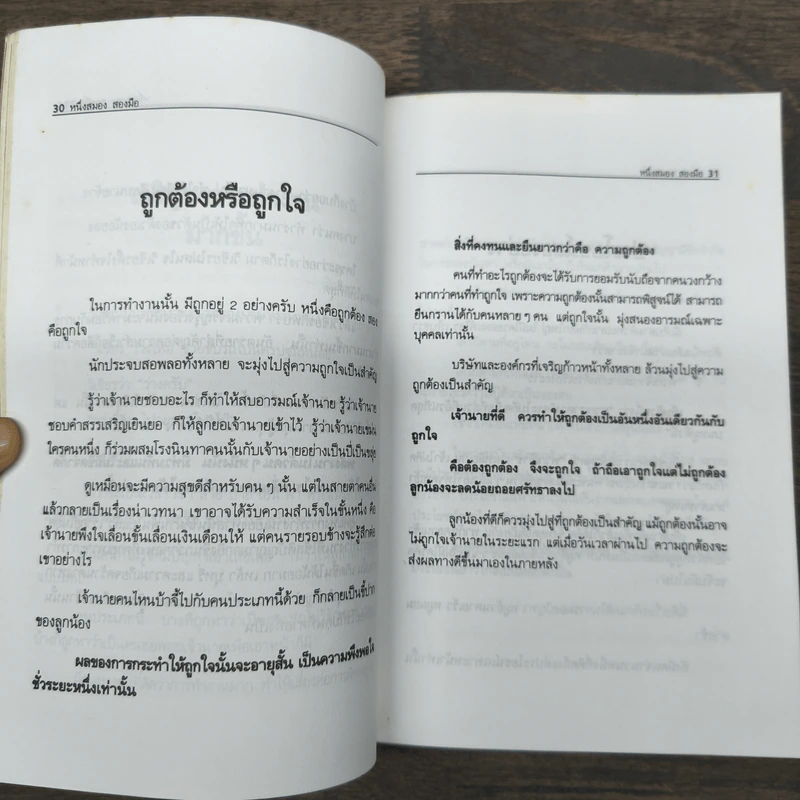 30 หนึ่งสมอง สองมือ
ถูกต้องหรือถูกใจ
ในการทำงานนั้น มีถูกอยู่ 2 อย่างครับ หนึ่งคือถูกต้อง สอง
คือถูกใจ
นักประจบสอพลอทั้งหลาย จะมุ่งไปสู่ความถูกใจเป็นสำคัญ
รู้ว่าเจ้านายชอบอะไร ก็ทำให้สบอารมณ์เจ้านาย รู้ว่าเจ้านาย
ชอบคำสรรเสริญเยินยอ ก็ให้ลูกยอเจ้านายเข้าไว้ รู้ว่าเจ้านายเขม่น
ใครคนหนึ่ง ก็ร่วมผสมโรงนินทาคนนั้นกับเจ้านายอย่างเป็นปี่เป็นขลุ่ย
ดูเหมือนจะมีความสุขดีสำหรับคน ๆ นั้น แต่ในสายตาคนอื่น
แล้วกลายเป็นเรื่องน่าเวทนา เขาอาจได้รับความสำเร็จในขั้นหนึ่ง คือ
เจ้านายพึงใจเลื่อนขั้นเลื่อนเงินเดือนให้ แต่คนรายรอบข้างจะรู้สึกต่อ
เขาอย่างไร
เจ้านายคนไหนบ้าจี้ไปกับคนประเภทนี้ด้วย ก็กลายเป็นขี้ปาก
ของลูกน้อง
ผลของการกระทำให้ถูกใจนั้นจะอายุสั้น เป็นความพึงพอใจ
ชั่วระยะหนึ่งเท่านั้น
หนึ่งสมอง สองมือ 31
สิ่งที่คงทนและยืนยาวกว่าคือ ความถูกต้อง
คนที่ทำอะไรถูกต้องจะได้รับการยอมรับนับถือจากคนวงกว้าง
มากกว่าคนที่ทำถูกใจ เพราะความถูกต้องนั้นสามารถพิสูจน์ได้ สามารถ
ยืนกรานได้กับคนหลาย ๆ คน แต่ถูกใจนั้น มุ่งสนองอารมณ์เฉพาะ
บุคคลเท่านั้น
บริษัทและองค์กรที่เจริญก้าวหน้าทั้งหลาย ล้วนมุ่งไปสู่ความ
ถูกต้องเป็นสำคัญ
เจ้านายที่ดี ควรทำให้ถูกต้องเป็นอันหนึ่งอันเดียวกันกับ
ถูกใจ
คือต้องถูกต้อง จึงจะถูกใจ ถ้าถือเอาถูกใจแต่ไม่ถูกต้อง
ลูกน้องจะลดน้อยถอยศรัทธาลงไป
ลูกน้องที่ดีก็ควรมุ่งไปสู่ที่ถูกต้องเป็นสำคัญ แม้ถูกต้องนั้นอาจ
ไม่ถูกใจเจ้านายในระยะแรก แต่เมื่อวันเวลาผ่านไป ความถูกต้องจะ
ส่งผลทางดีขึ้นมาเองในภายหลัง